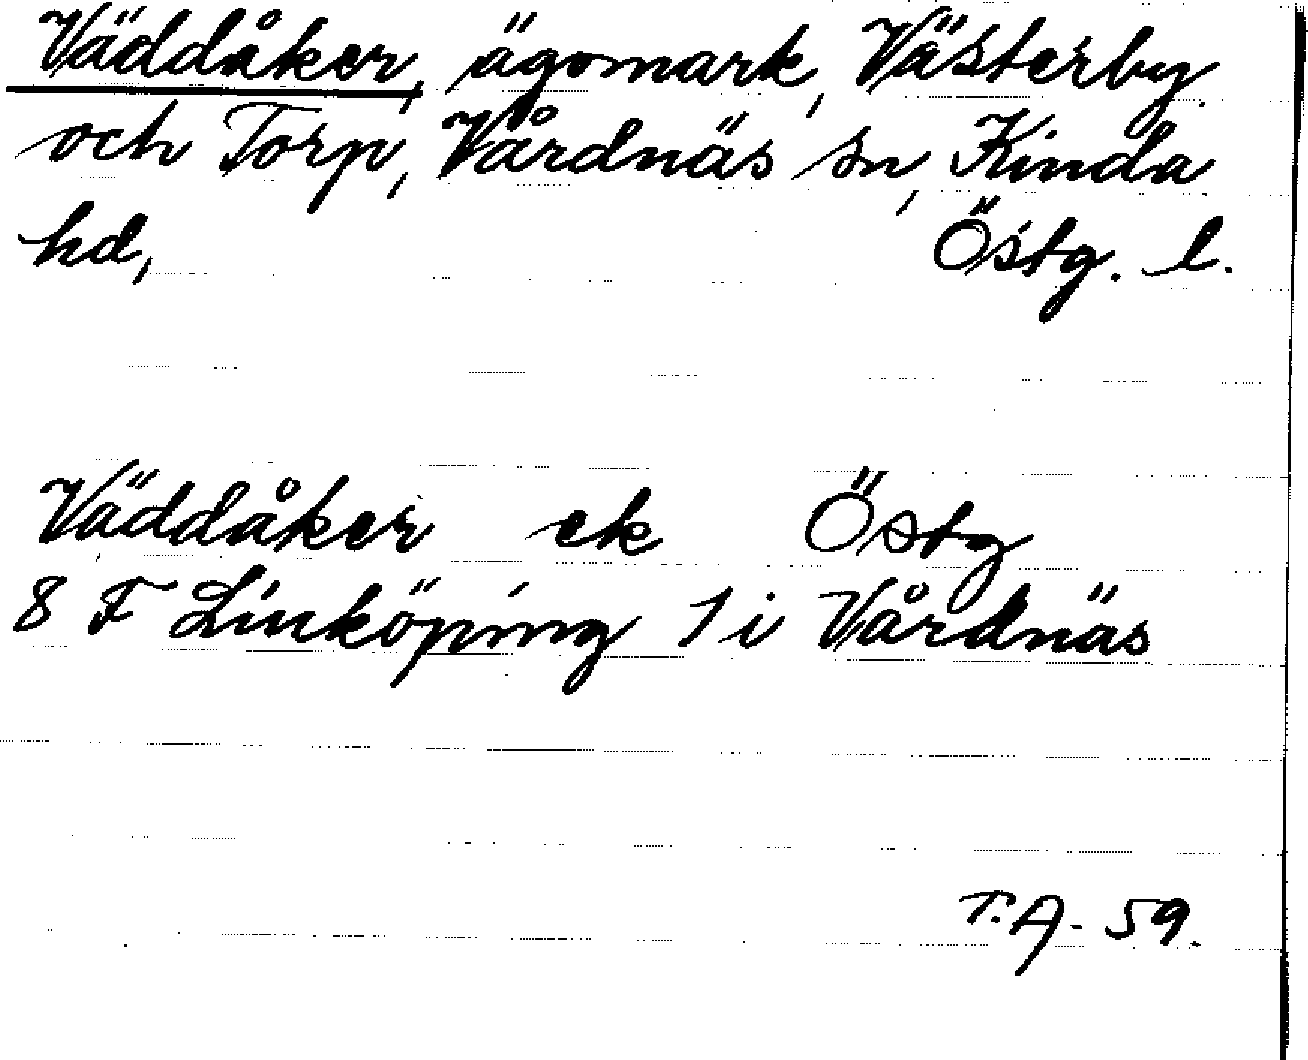 Väddåker, ägomark, Västerby
och Torp, Vårdnäs sn, Kinda
hd, Östg. l.
Väddåker ek Östg
8 F Linköping 1 i Vårdnäs
T.A. 59.